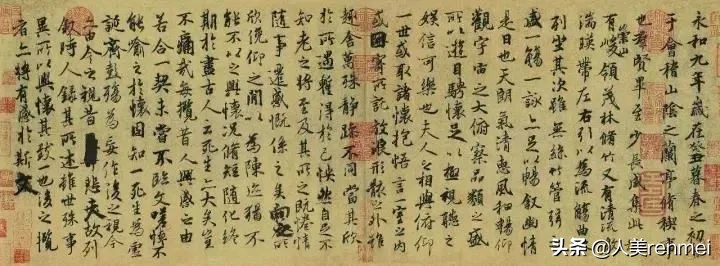 永和九年歲在癸丑暮春之初
于會稽山陰之蘭亭脩稧
也羣賢畢至少長咸集此
有崇山峻領茂林脩竹又有清流
湍暎帶左右引以為流觴曲
列坐其次雖無絲竹管弦
盛一觴一詠亦足以暢敘幽情
是日也天朗氣清惠風和暢仰
觀宇宙之大俯察品類之盛
所以遊目騁懷足以極視聽之
娛信可樂也夫人之相與俯仰
一世或取諸懷抱悟言一室之內
或因寄所託放浪形骸之外雖
趣舍萬殊靜躁不同當其欣
於所遇蹔得於己怏然自足不
知老之將至及其所之既惓情
隨事遷感慨係之矣向之所
欣俛仰之閒以為陳迹猶不
能不以之興懷況脩短隨化終
期於盡古人云死生亦大矣豈
不痛哉每攬昔人興感之由
若合一契未甞不臨文嗟悼不
能喻之於懷固知一死生為虛
誕齊彭殤為妄作後之視今
亦由今之視昔悲夫故列
敘時人錄其所述雖世殊事
異所以興懷其致一也後之攬
者亦將有感於斯文
头条 @人美renmei